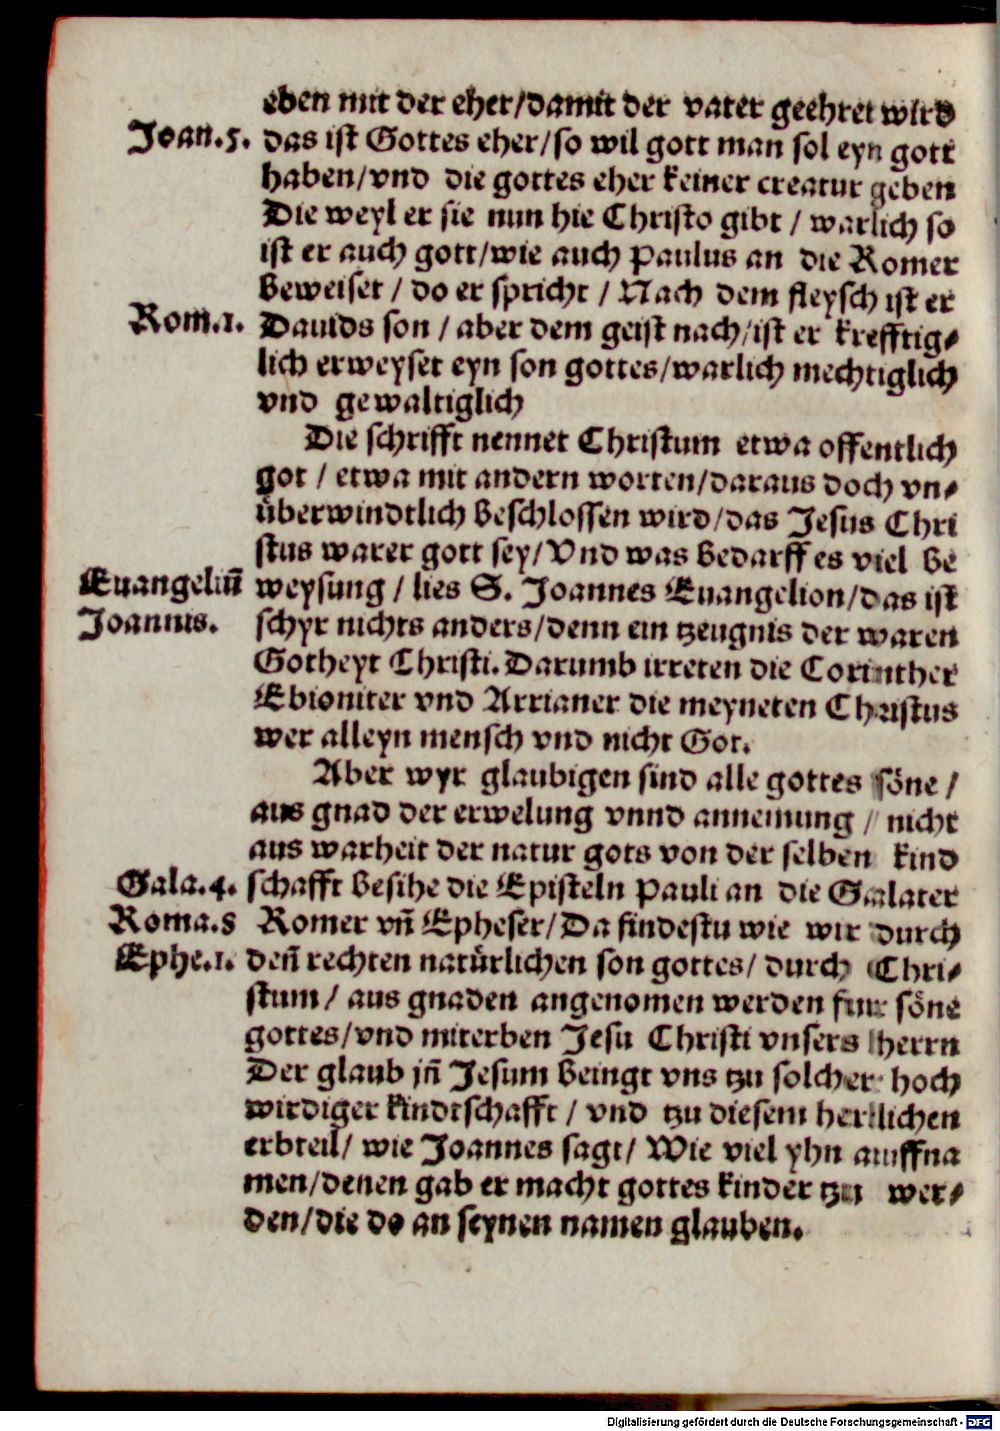 eben mit der eher/damit der vater geehret wird
Joan.5. das ist Gottes eher/so wil gott man sol eyn gott
haben/vnd die gottes eher keiner creatur geben
Die weyl er sie nun hie Christo gibt / warlich so
ist er auch gott/wie auch Paulus an die Romer
beweiset / do er spricht / Nach dem fleysch ist er
Rom.1. Dauids son / aber dem geist nach/ist er krefftig⸗
lich erweyset eyn son gottes/warlich mechtiglich
vnd gewaltiglich
Die schrifft nennet Christum etwa offentlich
got / etwa mit andern worten/daraus doch vn⸗
überwindtlich beschlossen wird/das Jesus Chri
stus warer gott sey/Vnd was bedarff es viel be
Euangeliū weysung / lies S. Joannes Euangelion/das ist
Joannis. schyr nichts anders/denn ein tzeugnis der waren
Gotheyt Christi. Darumb irreten die Corinther
Ebioniter vnd Arrianer die meyneten Christus
wer alleyn mensch vnd nicht Got.
Aber wyr glaubigen sind alle gottes söne /
aus gnad der erwelung vnnd annemung / nicht
aus warheit der natur gots von der selben kind
Gala.4. schafft besihe die Episteln Pauli an die Galater
Roma.8 Romer vn̄ Epheser/Da findestu wie wir durch
Ephe.1. den̄ rechten natürlichen son gottes/ durch Chri⸗
stum / aus gnaden angenomen werden fur söne
gottes/vnd miterben Jesu Christi vnsers herrn
Der glaub jn̄ Jesum beingt vns tzu solcher hoch
wirdiger kindtschafft / vnd tzu diesem herlichen
erbteil/ wie Joannes sagt/ Wie viel yhn auffna
men/denen gab er macht gottes kinder tzu wer⸗
den/die do an seynen namen glauben.
Digitalisierung gefördert durch die Deutsche Forschungsgemeinschaft - DFG